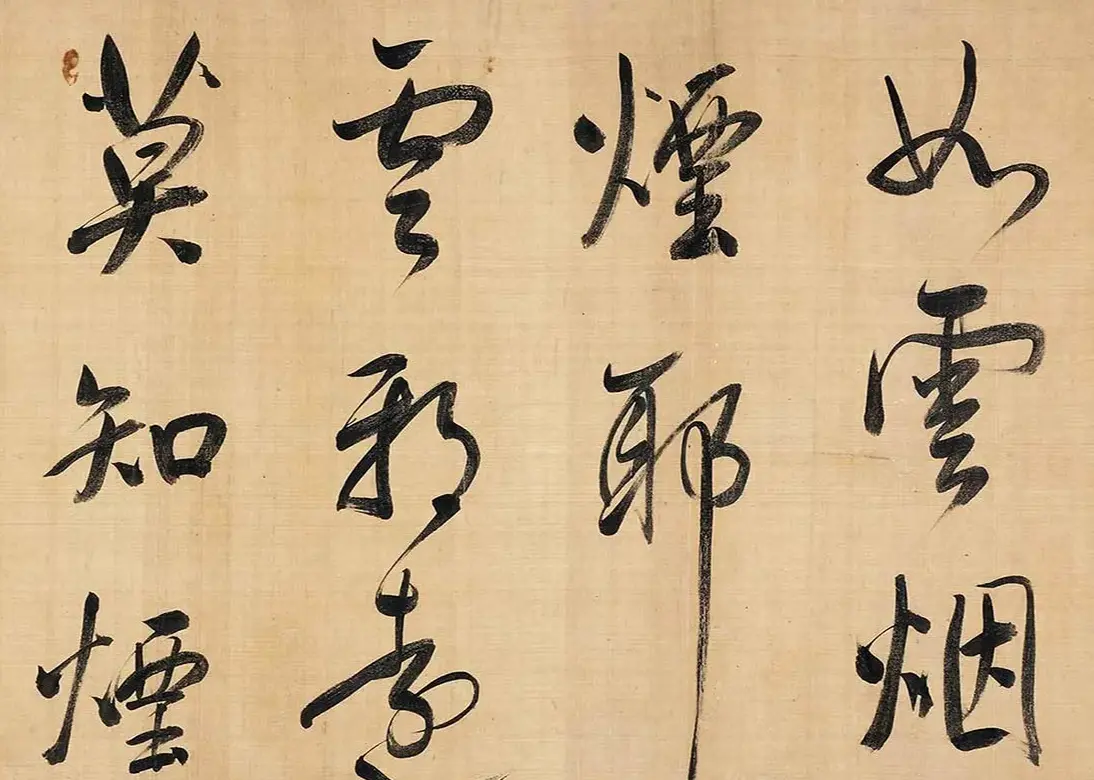 如雲烟
煙耶
雲邪遠
莫知煙